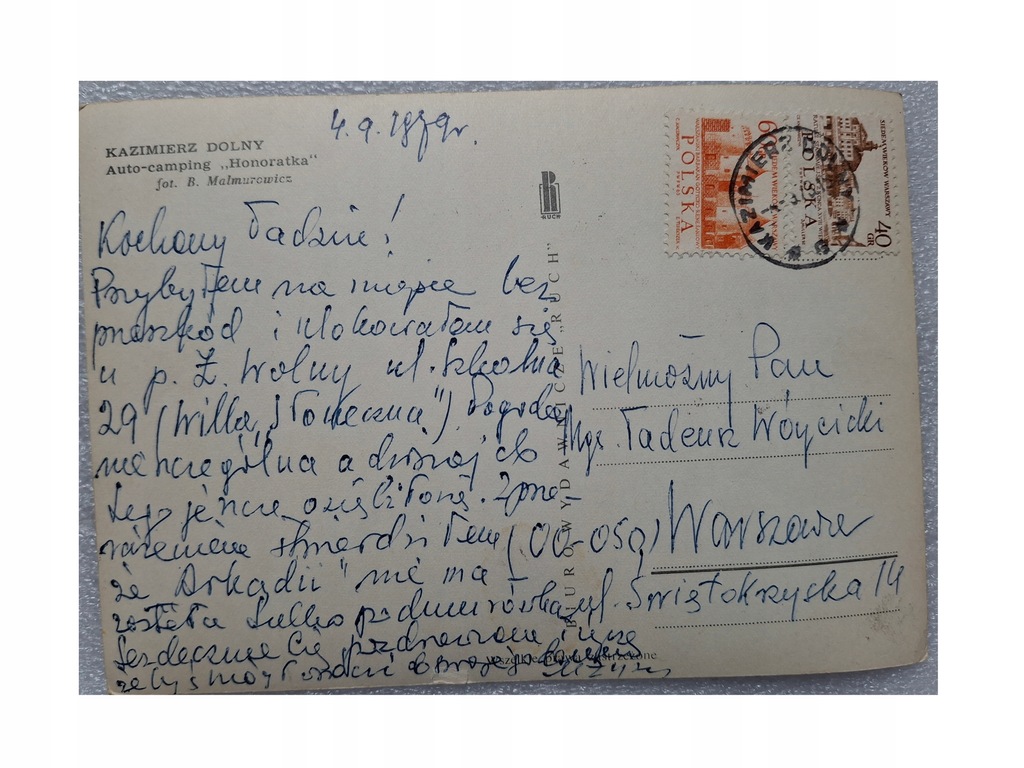 4.9.1979r.
KAZIMIERZ DOLNY
Auto-camping „Honoratka"
fot. B. Malmurowicz
Kochany Tadziu!
Przybyłem na miejsce bez
przeszkód i ulokowałem się
u p. Z. Wolny ul. Szkolna
29 (Willa „Słoneczna") Pogoda
nieszczególna a dzisiaj do
tego jeszcze oziębiło się. Z prze-
rażeniem stwierdziłem
że „Arkadii" nie ma -
została tylko podmurówka
Serdecznie Cię pozdrawiam i
RUCH
BIURO WYDAWNICZE „RUCH"
60
POLSKA
SIEDEM WIEKÓW WARSZAWY
POLSKA
40 GR
KAZIMIERZ DOLNY
Wielmożny Pan
Mgr. Tadeusz Wóycicki
(00-050) Warszawa
ul. Świętokrzyska 14